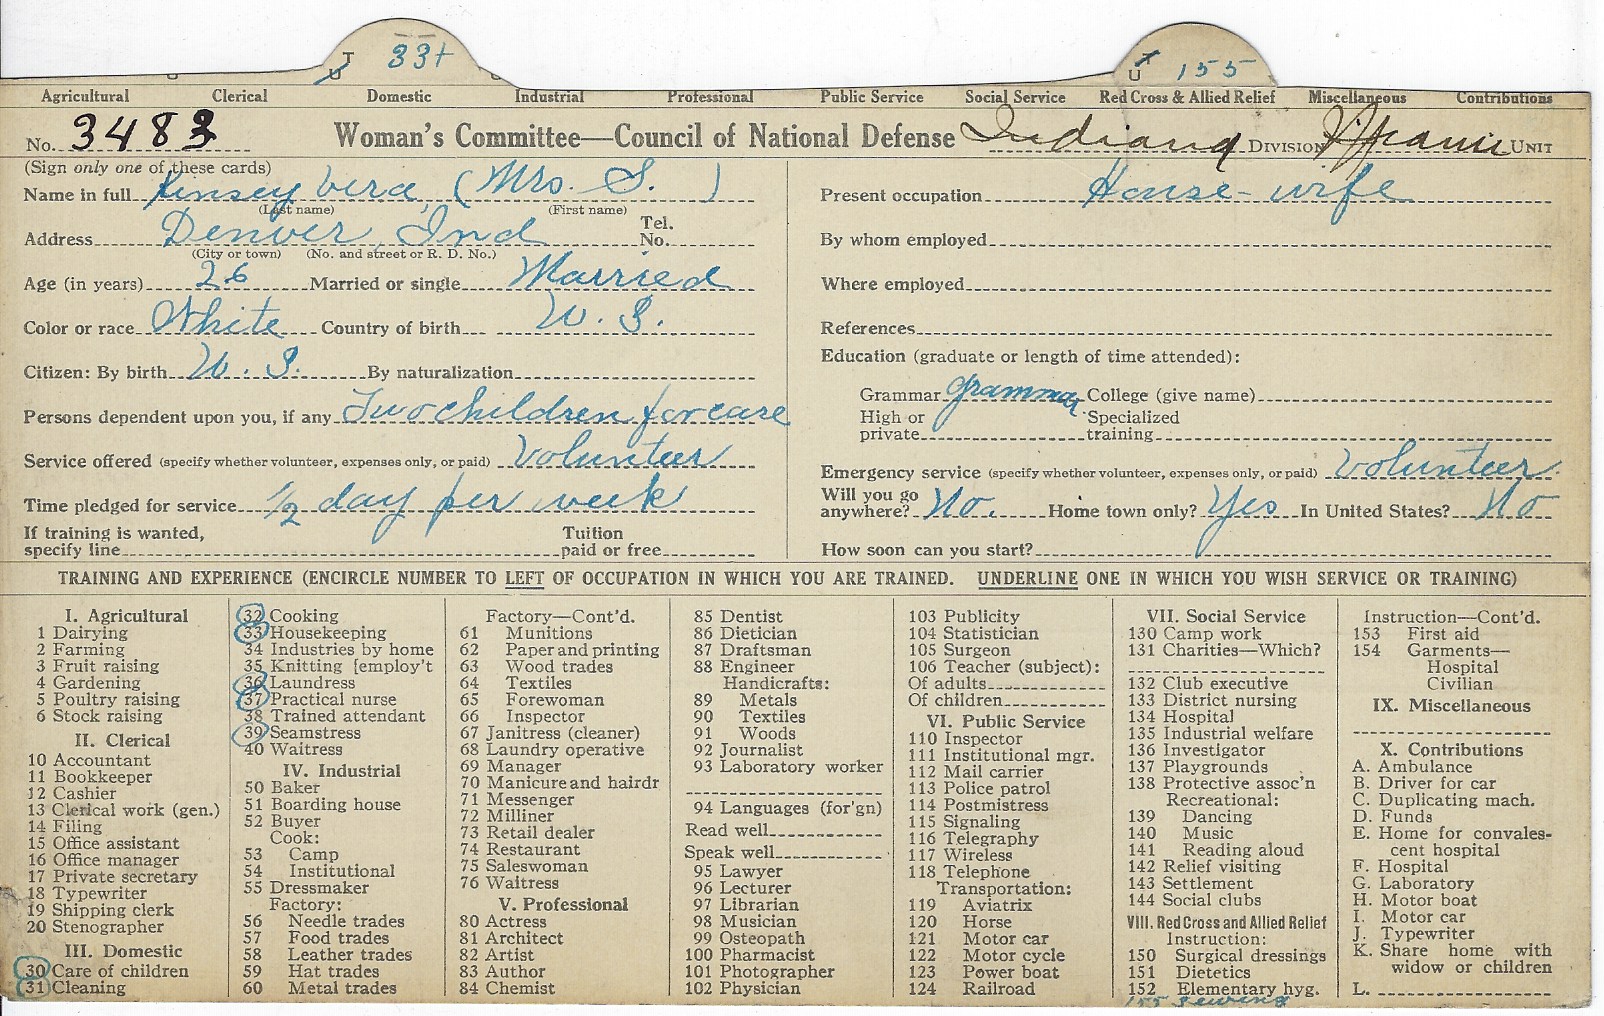 T U 33+
T U 155
Agricultural Clerical Domestic Industrial Professional Public Service Social Service Red Cross & Allied Relief Miscellaneous Contributions
No. 3483 Woman's Committee—Council of National Defense Indiana Division UNIT
(Sign only one of these cards)
Name in full Kinsey (Mrs. S. )
(Last name) (First name)
Address Denver, Ind Tel. No.
(City or town) (No. and street or R. D. No.)
Age (in years) 26 Married or single Married
Color or race White Country of birth U. S.
Citizen: By birth U. S. By naturalization
Persons dependent upon you, if any Two children for care
Service offered (specify whether volunteer, expenses only, or paid) Volunteer
Time pledged for service 1/2 day per week
If training is wanted, specify line Tuition paid or free
Present occupation House-wife
By whom employed
Where employed
References
Education (graduate or length of time attended):
Grammar Grammar College (give name)
High or private Specialized training
Emergency service (specify whether volunteer, expenses only, or paid) Volunteer
Will you go anywhere? No. Home town only? Yes In United States? No
How soon can you start?
TRAINING AND EXPERIENCE (ENCIRCLE NUMBER TO LEFT OF OCCUPATION IN WHICH YOU ARE TRAINED. UNDERLINE ONE IN WHICH YOU WISH SERVICE OR TRAINING)
I. Agricultural
1 Dairying
2 Farming
3 Fruit raising
4 Gardening
5 Poultry raising
6 Stock raising
II. Clerical
10 Accountant
11 Bookkeeper
12 Cashier
13 Clerical work (gen.)
14 Filing
15 Office assistant
16 Office manager
17 Private secretary
18 Typewriter
19 Shipping clerk
20 Stenographer
III. Domestic
30 Care of children
31 Cleaning
32 Cooking
33 Housekeeping
34 Industries by home
35 Knitting [employ't
36 Laundress
37 Practical nurse
38 Trained attendant
39 Seamstress
40 Waitress
IV. Industrial
50 Baker
51 Boarding house
52 Buyer
Cook:
53 Camp
54 Institutional
55 Dressmaker
Factory:
56 Needle trades
57 Food trades
58 Leather trades
59 Hat trades
60 Metal trades
Factory—Cont'd.
61 Munitions
62 Paper and printing
63 Wood trades
64 Textiles
65 Forewoman
66 Inspector
67 Janitress (cleaner)
68 Laundry operative
69 Manager
70 Manicure and hairdr
71 Messenger
72 Milliner
73 Retail dealer
74 Restaurant
75 Saleswoman
76 Waitress
V. Professional
80 Actress
81 Architect
82 Artist
83 Author
84 Chemist
85 Dentist
86 Dietician
87 Draftsman
88 Engineer
Handicrafts:
89 Metals
90 Textiles
91 Woods
92 Journalist
93 Laboratory worker
94 Languages (for'gn)
Read well
Speak well
95 Lawyer
96 Lecturer
97 Librarian
98 Musician
99 Osteopath
100 Pharmacist
101 Photographer
102 Physician
103 Publicity
104 Statistician
105 Surgeon
106 Teacher (subject):
Of adults
Of children
VI. Public Service
110 Inspector
111 Institutional mgr.
112 Mail carrier
113 Police patrol
114 Postmistress
115 Signaling
116 Telegraphy
117 Wireless
118 Telephone
Transportation:
119 Aviatrix
120 Horse
121 Motor car
122 Motor cycle
123 Power boat
124 Railroad
VII. Social Service
130 Camp work
131 Charities—Which?
132 Club executive
133 District nursing
134 Hospital
135 Industrial welfare
136 Investigator
137 Playgrounds
138 Protective assoc'n
Recreational:
139 Dancing
140 Music
141 Reading aloud
142 Relief visiting
143 Settlement
144 Social clubs
VIII. Red Cross and Allied Relief
Instruction:
150 Surgical dressings
151 Dietetics
152 Elementary hyg.
155 Sewing
Instruction—Cont'd.
153 First aid
154 Garments—
Hospital
Civilian
IX. Miscellaneous
X. Contributions
A. Ambulance
B. Driver for car
C. Duplicating mach.
D. Funds
E. Home for convales-
cent hospital
F. Hospital
G. Laboratory
H. Motor boat
I. Motor car
J. Typewriter
K. Share home with
widow or children
L.